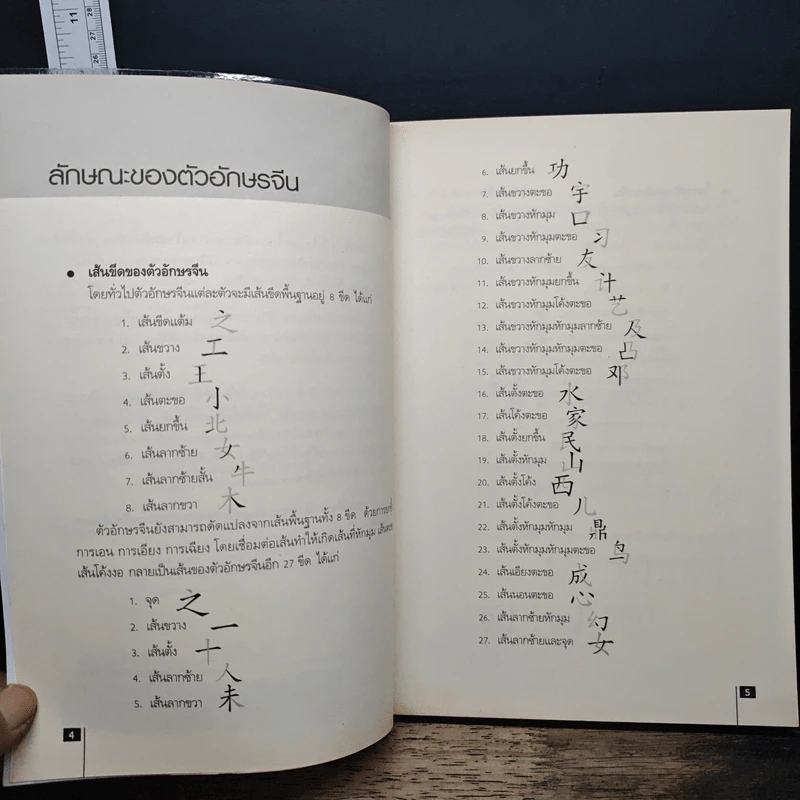 11
28
27
26
ลักษณะของตัวอักษรจีน
● เส้นขีดของตัวอักษรจีน
โดยทั่วไปตัวอักษรจีนแต่ละตัวจะมีเส้นขีดพื้นฐานอยู่ 8 ขีด ได้แก่
1. เส้นขีดแต้ม 之
2. เส้นขวาง 工
3. เส้นตั้ง 王
4. เส้นตะขอ 小
5. เส้นยกขึ้น 北
6. เส้นลากซ้าย 女
7. เส้นลากซ้ายสั้น 牛
8. เส้นลากขวา 木
ตัวอักษรจีนยังสามารถดัดแปลงจากเส้นพื้นฐานทั้ง 8 ขีด ด้วยการ
การเอน การเอียง การเฉียง โดยเชื่อมต่อเส้นทำให้เกิดเส้นที่หักมุม
เส้นโค้งงอ กลายเป็นเส้นของตัวอักษรจีนอีก 27 ขีด ได้แก่
1. จุด 之
2. เส้นขวาง 一
3. เส้นตั้ง 十
4. เส้นลากซ้าย 人
5. เส้นลากขวา 未
4
6. เส้นยกขึ้น 功
7. เส้นขวางตะขอ 宇
8. เส้นขวางหักมุม 口
9. เส้นขวางหักมุมตะขอ 习
10. เส้นขวางลากซ้าย 友
11. เส้นขวางหักมุมยกขึ้น 计
12. เส้นขวางหักมุมโค้งตะขอ 艺
13. เส้นขวางหักมุมหักมุมลากซ้าย 及
14. เส้นขวางหักมุมหักมุมตะขอ 凸
15. เส้นขวางหักมุมโค้งตะขอ 邓
16. เส้นตั้งตะขอ 水
17. เส้นโค้งตะขอ 家
18. เส้นตั้งยกขึ้น 民
19. เส้นตั้งหักมุม 山
20. เส้นตั้งโค้ง 西
21. เส้นตั้งโค้งตะขอ 儿
22. เส้นตั้งหักมุมหักมุม 鼎
23. เส้นตั้งหักมุมหักมุมตะขอ 鸟
24. เส้นเอียงตะขอ 成
25. เส้นนอนตะขอ 心
26. เส้นลากซ้ายหักมุม 幻
27. เส้นลากซ้ายและจุด 女
5